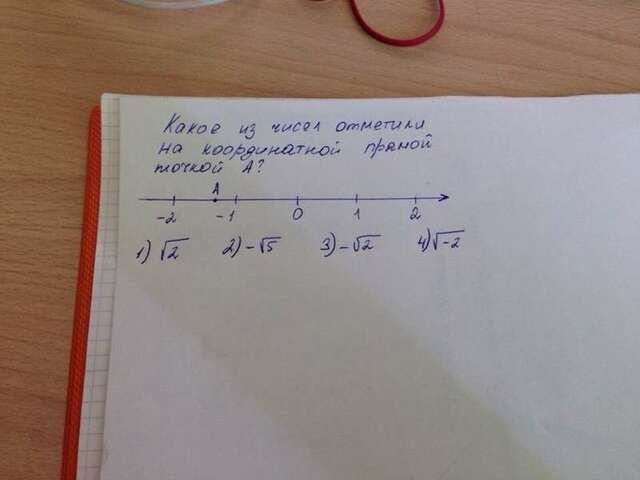 Какое из чисел отметили
на координатной прямой
точкой А?
А
-2 -1 0 1 2
1) √2 2) -√5 3) -√2 4) √-2